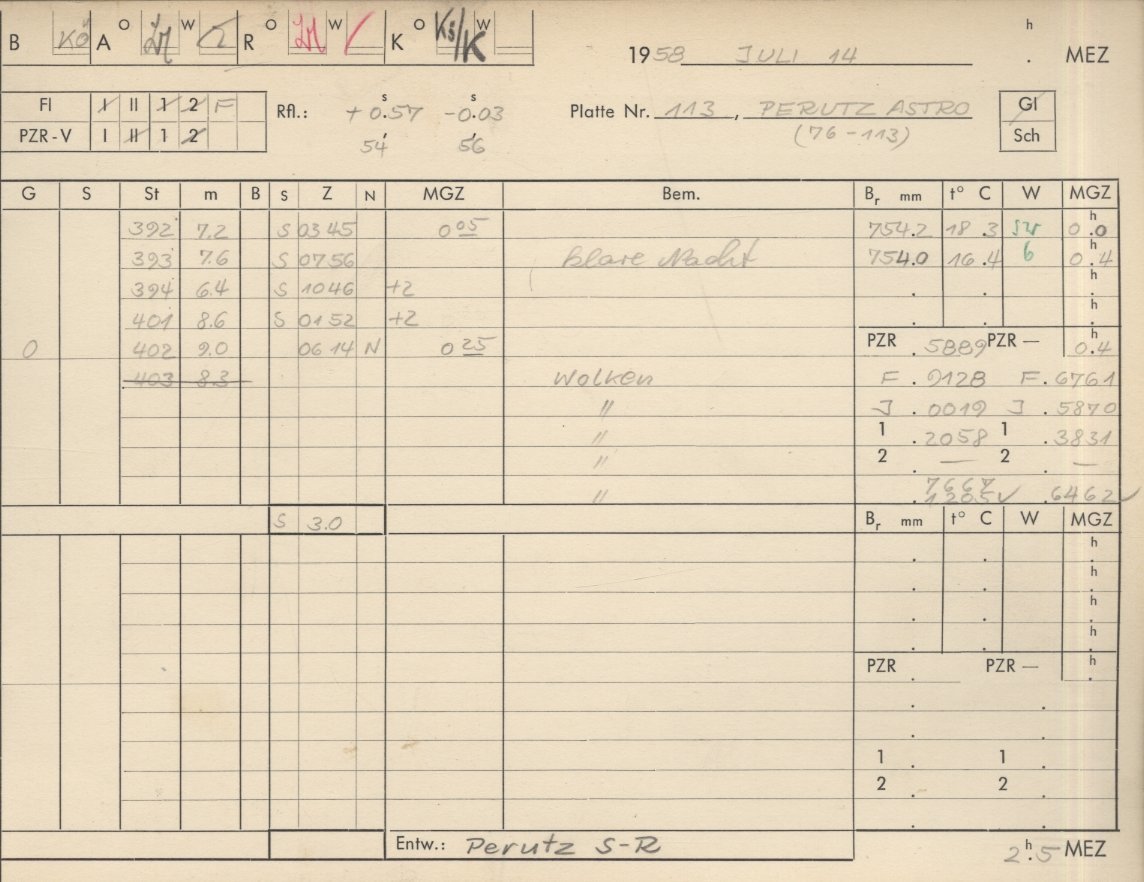 B KÖ A O W R O W K O Kš/K W
h
1958 JULI 14 . MEZ
FI I II 1 2 F
PZR-V I II 1 2
Rfl.: +0.57 -0.03
s s
54 56
Platte Nr. 113, PERUTZ ASTRO
(76-113)
Gl
Sch
G S St m B S Z N MGZ Bem. Br mm t° C W MGZ
392 7.2 S 03 45 0 05 754.2 18.3 SW 0h.0
393 7.6 S 07 56 klare Nacht 754.0 16.4 6 0h.4
394 6.4 S 10 46 +2 . . h.
401 8.6 S 01 52 +2 . . h.
0 402 9.0 06 14 N 0 25 PZR .5889 PZR — 0h.4
403 8.3 Wolken F .9128 F .6761
" J .0019 J .5870
" 1 .2058 1 .3831
" 2 . — 2 . —
7667
" .1205 √ .6462 √
S 3.0 Br mm t° C W MGZ
. . h.
. . h.
. . h.
. . h.
PZR . PZR — h.
. .
. .
1 . 1 .
2 . 2 .
. .
Entw.: Perutz S-R 2h.5 MEZ